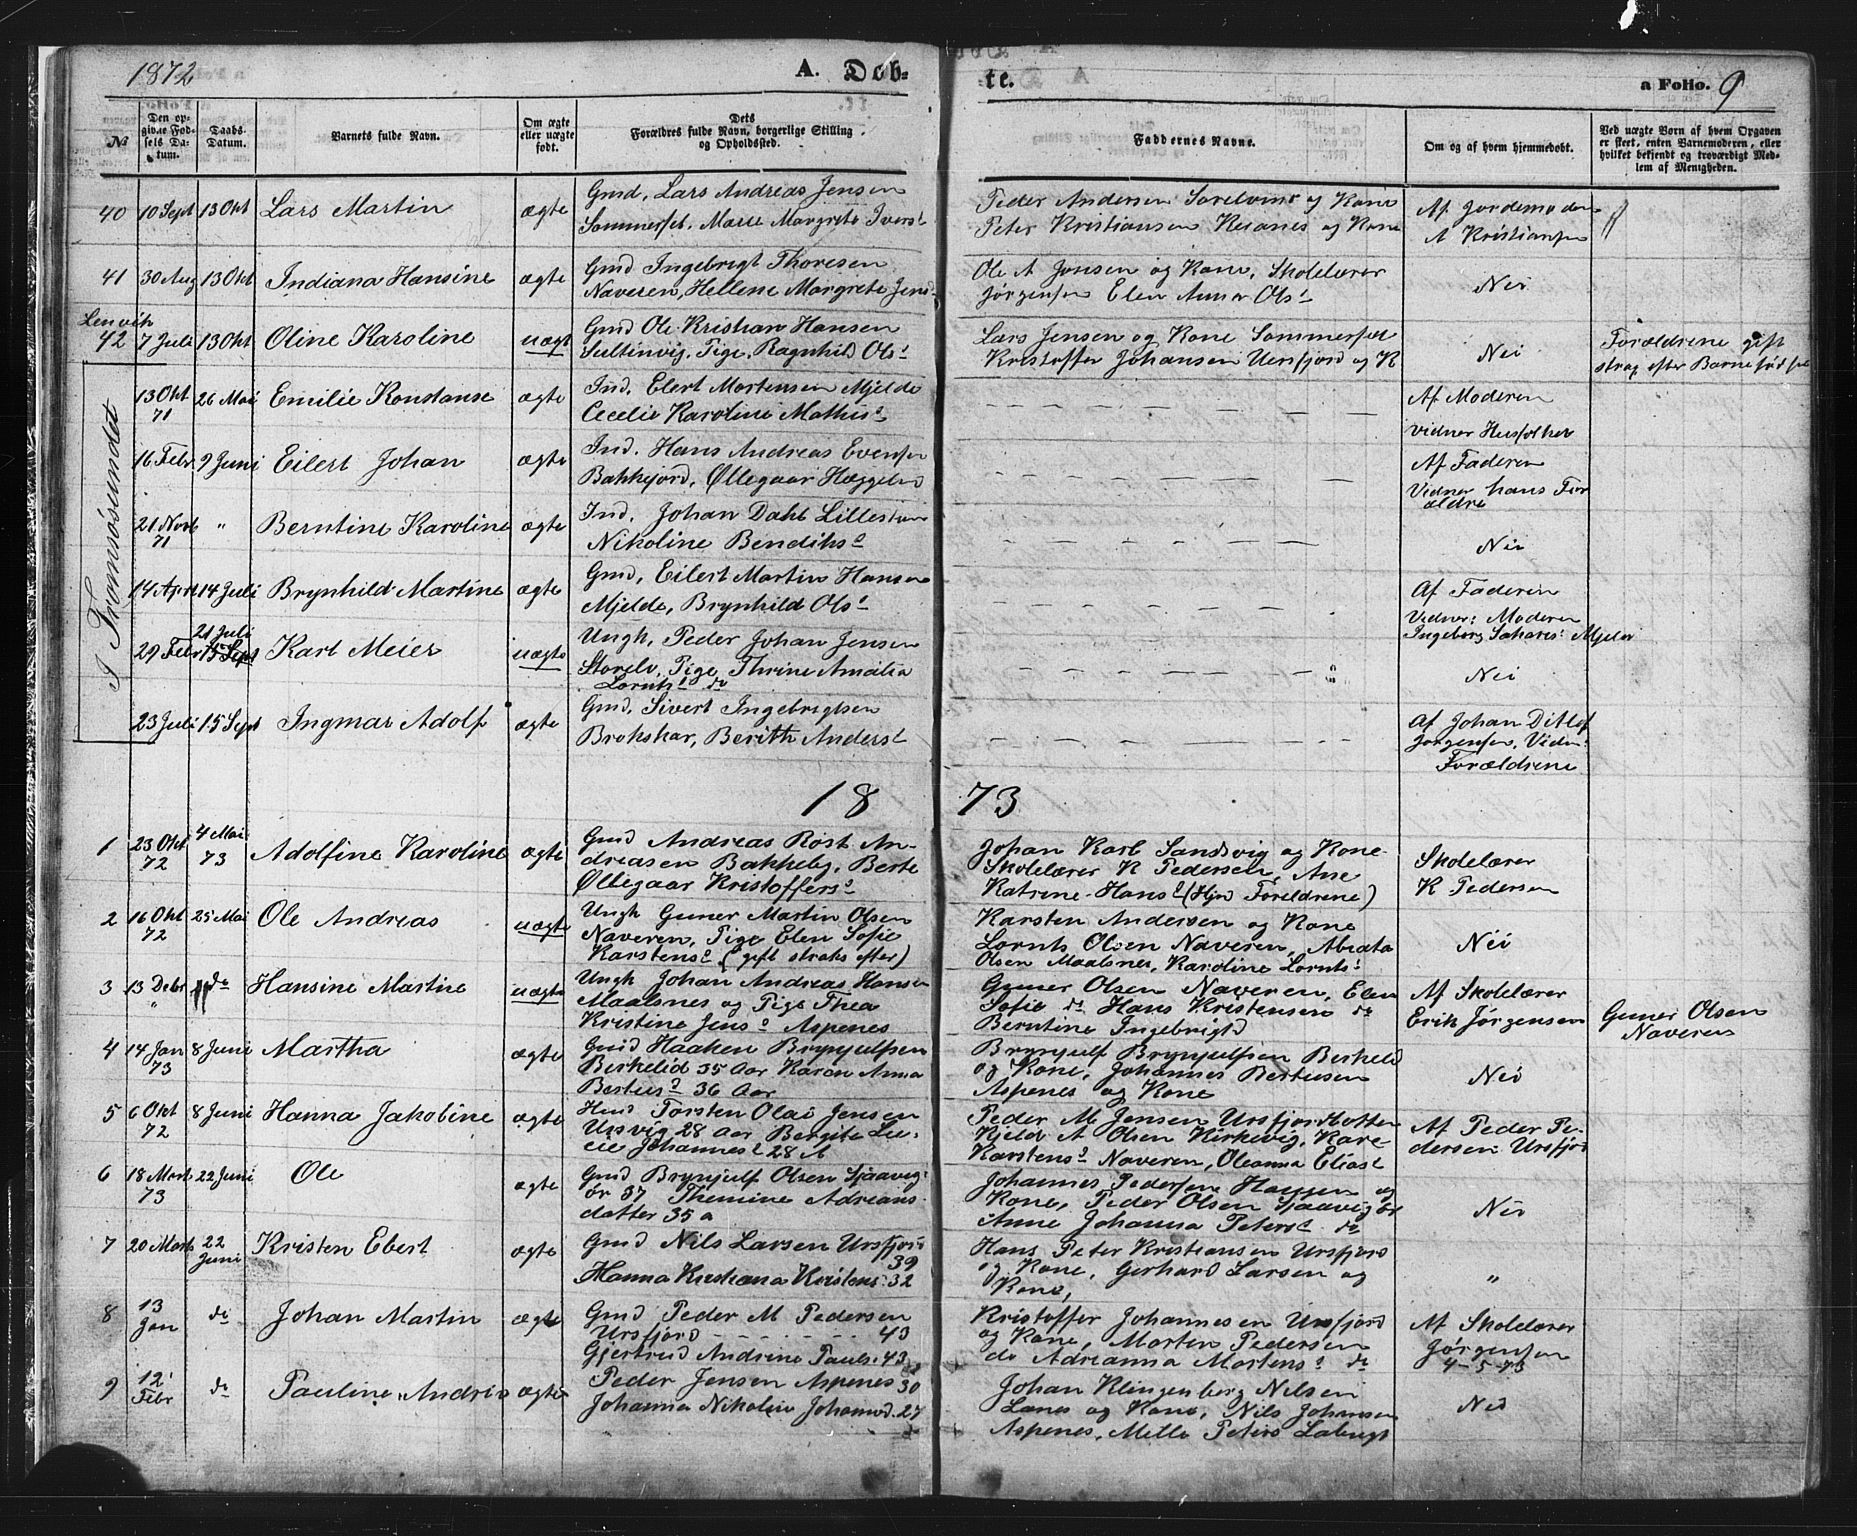 1872 A. Døb-
te. a Folio. 9
№ Den op-givne Fød-sels Da-tum. Daabs-Datum. Barnets fulde Navn. Om ægte eller uægte født. Dets Forældres fulde Navn, borgerlige Stilling og Opholdssted. Faddernes Navne. Om og af hvem hjemmedøbt. Ved uægte Børn af hvem Opgaven er skeet, enten Barnemoderen, eller hvilket bekjendt og troværdigt Med-lem af Menigheden.
40 10 Sept 13 Okt Lars Martin ægte Gmd, Lars Andreas Jensen
Sommerset. Margrete Iverst
Peder Andersen og Kone
Peter Kristiansen og Kone
Af Jordemoderen
A Kristiansen
41 30 Aug 13 Okt Indiana Hansine ægte Gmd Ingebrigt Thoresen
Naveren, Hellene Margrete Jens
Ole A Jensen og Kone, Skolelærer
Jørgensen Elen Anna Ols
Nei
Lenvik
42 7 Juli 13 Okt Oline Karoline uægt Gmd Ole Kristian Hansen
Sultinvig, Pige, Ragnhild Ols
Lars Jensen og Kone Sommerset
Kristoffer Johansen Uersfjord og K
Nei
Forældrene gift
strax efter Barnefødsel
I Tromsøsundet
13 Okt 71 26 Mai Emilie Konstanse ægte Ind. Elert Mortensen Mjelde
Cecelie Karoline Mathis
Af Moderen
Vidner Husfolket
16 Febr 9 Juni Eilert Johan ægte Ind. Hans Andreas Evensen
Bakkejord, Øllegaar Hæggelund
Af Faderen
Vidner hans For
ældre
21 Novb 71 " Berntine Karoline ægte Ind. Johan Dahl Lillestrøm
Nikoline Bendiks
Nei
14 Apri 14 Juli Brynhild Martine ægte Gmd, Eilert Martin Hansen
Mjelde, Brynhild Ols
Af Faderen
Vidner: Moderen
Ingeborg Mjelde
29 Febr 21 Juli 15 Sept Karl Meier uægte Ungk, Peder Johan Jensen
Storelv, Pige Thrine Amalia
Lornts do
Nei
23 Juli 15 Sept Ingmar Adolf ægte Gmd, Sivert Ingebrigtsen
Brokskar, Berith Anders
Af Johan Ditlef
Jørgensen, Vidn:
Forældrene
18 73
1 23 Okt 72 4 Mai 73 Adolfine Karoline ægte Gmd Andreas Rost An-
dreasen Bakkeby, Berte
Øllegaar Kristoffers
Johan Karl Sandsvig og Kone
Skolelærer K Pedersen, Ane
Katrine Hans (Hjm Foreldrene)
Skolelærer
K Pedersen
2 16 Okt 72 25 Mai Ole Andreas uægte Ungk Guner Martin Olsen
Naveren, Pige Elen Sofie
Karstens (gift straks efter)
Karsten Andersen og Kone
Lornts Olsen Naveren, Abrata
Olsen Maalsnes, Karoline Lornts
Nei
3 13 Debr " do Hansine Martine uægte Ungk Johan Andreas Hansen
Maalsnes og Pige Thea
Kristine Jens Aspenes
Guner Olsen Naveren, Elen
Sofie do Hans Kristensen do
Berntine Ingebrigtd
Af Skolelærer
Erik Jørgensen
Guner Olsen
Naveren
4 14 Jan 73 8 Juni Martha ægte Gmd Haaken Brynjulfsen
Birkelid 35 Aar Karen Anna
Bertus 36 Aar
Brynjulf Brynjulfsen Birkelid
og Kone, Johannes Bertusen
Aspenes og Kone
Nei
5 6 Okt 72 8 Juni Hanna Jakobine ægte Torsten Olai Jensen
Ursvig 28 Aar Bergite Lu-
cie Johannes 28 A
Peder M Jensen Ursfjordbotten
Kjeld A Olsen Kirkevig, Kare
Karstens Naveren, Oleanna Elias
Af Peder Pe-
dersen Ursfjor
6 18 Mart 73 22 Juni Ole ægte Gmd Brynjulf Olsen Sjaavig-
ør 37 Themine Adrians-
datter 35 a
Johannes Pedersen Haugen og
Kone, Peder Olsen Sjaavigør
Anne Johanna Peters do
Nei
7 20 Marts 22 Juni Kristen Ebert ægte Gmd Nils Larsen Ursfjord
39
Hanna Kristiana Kristens. 32
Hans Peter Kristiansen Ursfjord
og Kone, Gerhard Larsen og
Kone,
"
8 13 Jan do Johan Martin ægte Gmd Peder M Pedersen
Ursfjord 43
Gjertrud Andrine Pauls. 43
Kristoffer Johannesen Ursfjord
og Kone, Morten Pedersen
do Adrianna Mortens do
Af Skolelærer
Jørgensen
4-5-73
9 12 Febr do Pauline Andrea ægte Peder Jensen Aspenes 30
Johanna Nikoline Johansd. 27
Johan Klingenberg Nilsen
Lanes og Kone, Nils Johansen
Aspenes, Mette Peters
Nei